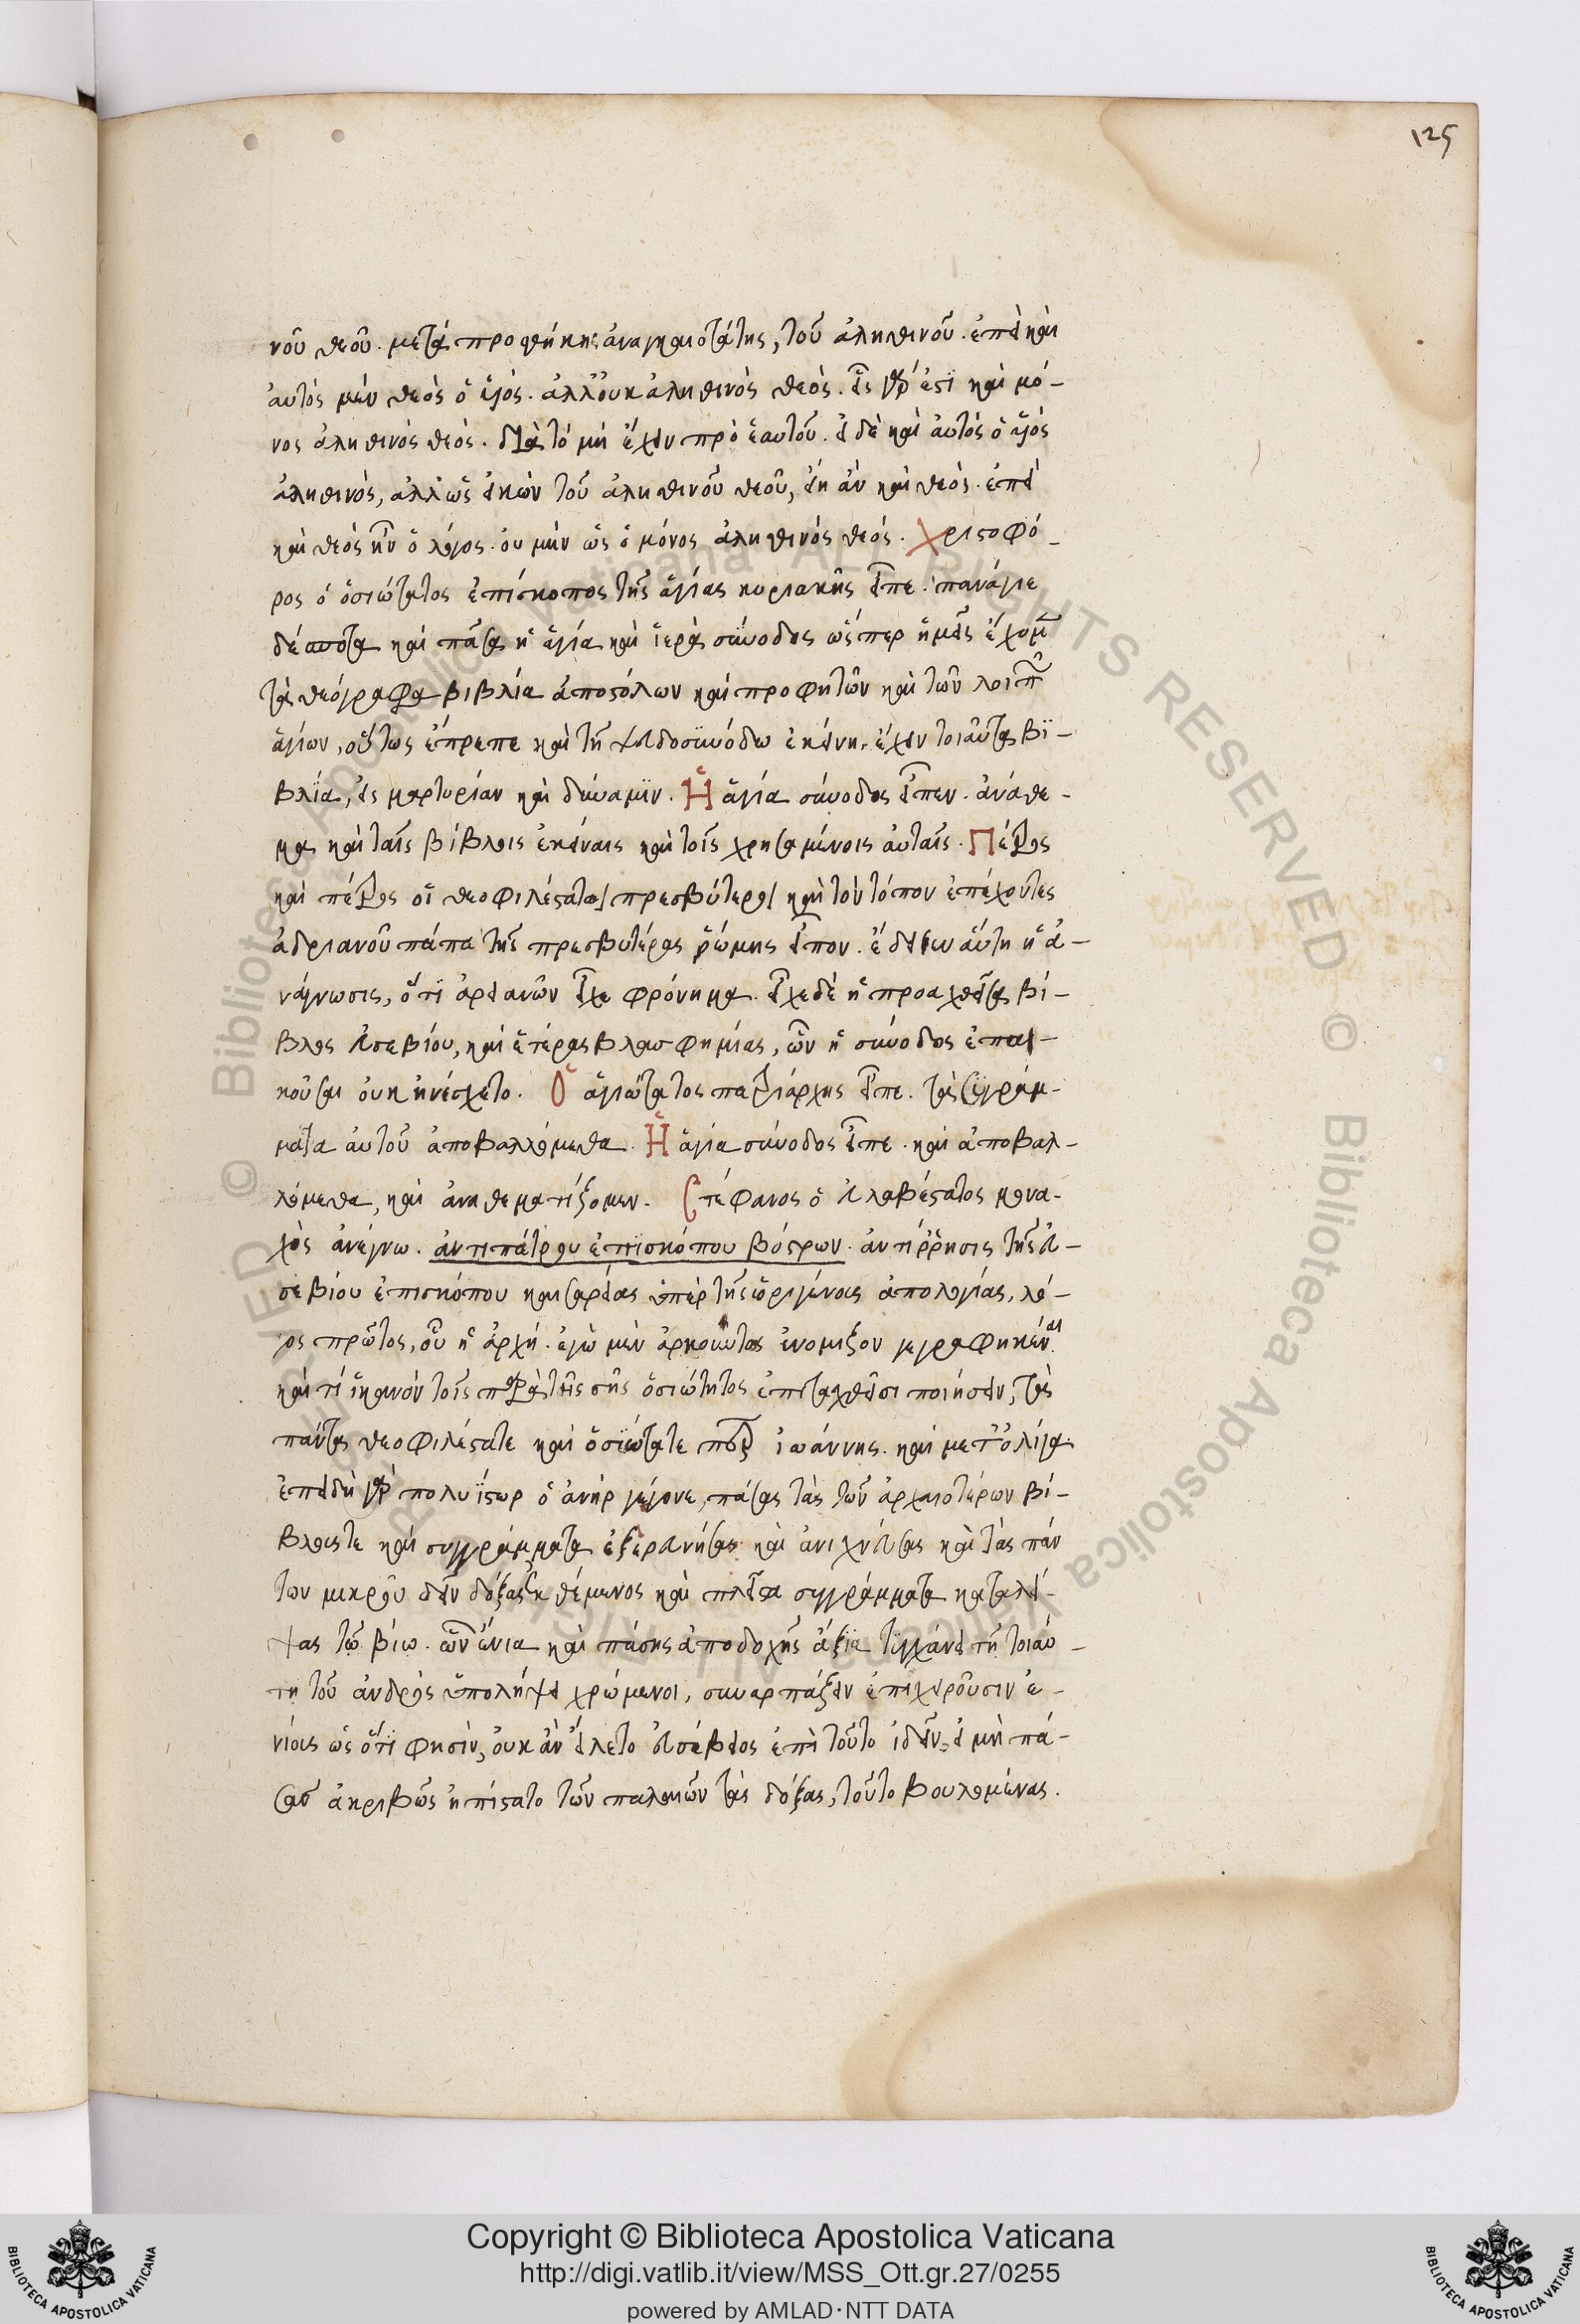 125
νοῦ θεοῦ. μετὰ προσθήκης ἀναγκαιοτάτης, τοῦ ἀληθινοῦ. ἐπεὶ καὶ
αὐτὸς μὲν θεὸς ὁ υἱός. ἀλλ᾽ οὐκ ἀληθινὸς θεός. εἷς γάρ ἐστι καὶ μό-
νος ἀληθινὸς θεός. διὰ τὸ μὴ ἔχειν πρὸ ἑαυτοῦ. εἰ δὲ καὶ αὐτὸς ὁ υἱὸς
ἀληθινός, ἀλλ᾽ ὡς εἰκὼν τοῦ ἀληθινοῦ θεοῦ, εἴη ἂν καὶ θεός. ἐπεὶ
καὶ θεὸς ἦν ὁ λόγος. οὐ μὴν ὡς ὁ μόνος ἀληθινὸς θεός. Χριστοφό-
ρος ὁ ὁσιώτατος ἐπίσκοπος τῆς ἁγίας κυριακῆς εἶπε. πανάγιε
δέσποτα καὶ πᾶσα ἡ ἁγία καὶ ἱερὰ σύνοδος ὥσπερ ἡμεῖς ἔχομεν
τὰ θεόγραφα βιβλία ἀποστόλων καὶ προφητῶν καὶ τῶν λοιπῶν
ἁγίων, οὕτως ἔπρεπε καὶ τῇ ψευδοσυνόδω ἐκείνη, ἔχειν τοιαῦτα βι-
βλία, εἰς μαρτυρίαν καὶ δύναμιν. Ἡ ἁγία σύνοδος εἶπεν. ἀνάθε-
μα καὶ ταῖς βίβλοις ἐκείναις καὶ τοῖς χρησαμένοις αὐταῖς. Πέτρος
καὶ πέτρος οἱ θεοφιλέστατοι πρεσβύτεροι καὶ τὸν τόπον ἐπέχοντες
ἀδριανοῦ πάπα τῆς πρεσβυτέρας ῥώμης εἶπον. ἔδειξεν αὕτη ἡ ἀ-
νάγνωσις, ὅτι ἀρειανῶν εἶχε φρόνημα. εἶχε δὲ ἡ προαχθεῖσα βί-
βλος εὐσεβίου, καὶ ἑτέρας βλασφημίας, ὧν ἡ σύνοδος ἐπα-
κοῦσαι οὐκ ἠνέσχετο. Ὁ ἁγιώτατος πατριάρχης εἶπε. τὰ συγγράμ-
ματα αὐτοῦ ἀποβαλλόμεθα. Ἡ ἁγία σύνοδος εἶπε. καὶ ἀποβαλ-
λόμεθα, καὶ ἀναθεματίζομεν. Στέφανος ὁ εὐλαβέστατος μονα-
χὸς ἀνέγνω. ἀντιπάτρου ἐπισκόπου βόστρων. ἀντίρρησις τῆς εὐ-
σεβίου ἐπισκόπου καισαρείας ὑπὲρ τῆς ὠριγένους ἀπολογίας, λό-
γος πρῶτος, οὗ ἡ ἀρχή. ἐγὼ μὲν ἀρκούντως ἐνόμιζον γεγραφηκέναι
καὶ τί ἱκανὸν τοῖς παρὰ τῆς σῆς ὁσιότητος ἐπιταχθεῖσι ποιήσειν, τὰ
πάντα θεοφιλέστατε καὶ ὁσιώτατε πάτερ ἰωάννης. καὶ μετ᾽ ὀλίγα.
ἐπειδὴ γὰρ πολυΐστωρ ὁ ἀνὴρ γέγονε, πάσας τὰς τῶν ἀρχαιοτέρων βί-
βλους τε καὶ συγγράμματα ἐξερευνήσας καὶ ἀνιχνεύσας καὶ τὰς πάν
των μικροῦ δεῖν δόξας ἐκθέμενος καὶ πλεῖστα συγγράμματα καταλεί-
ψας τῷ βίω. ὧν ἔνια καὶ πάσης ἀποδοχῆς ἄξια τυγχάνει τῇ τοιαύ-
τη τοῦ ἀνδρὸς ὑπολήψει χρώμενοι, συναρπάζειν ἐπιχειροῦσιν ἐ-
νίους ὡς ὅτι φησὶν, οὐκ ἂν εἵλετο εὐσέβειος ἐπὶ τοῦτο ἰδεῖν, εἰ μὴ πά-
σας ἀκριβῶς ἠπίστατο τῶν παλαιῶν τὰς δόξας, τοῦτο βουλομένας.
Copyright © Biblioteca Apostolica Vaticana
http://digi.vatlib.it/view/MSS_Ott.gr.27/0255
powered by AMLAD·NTT DATA